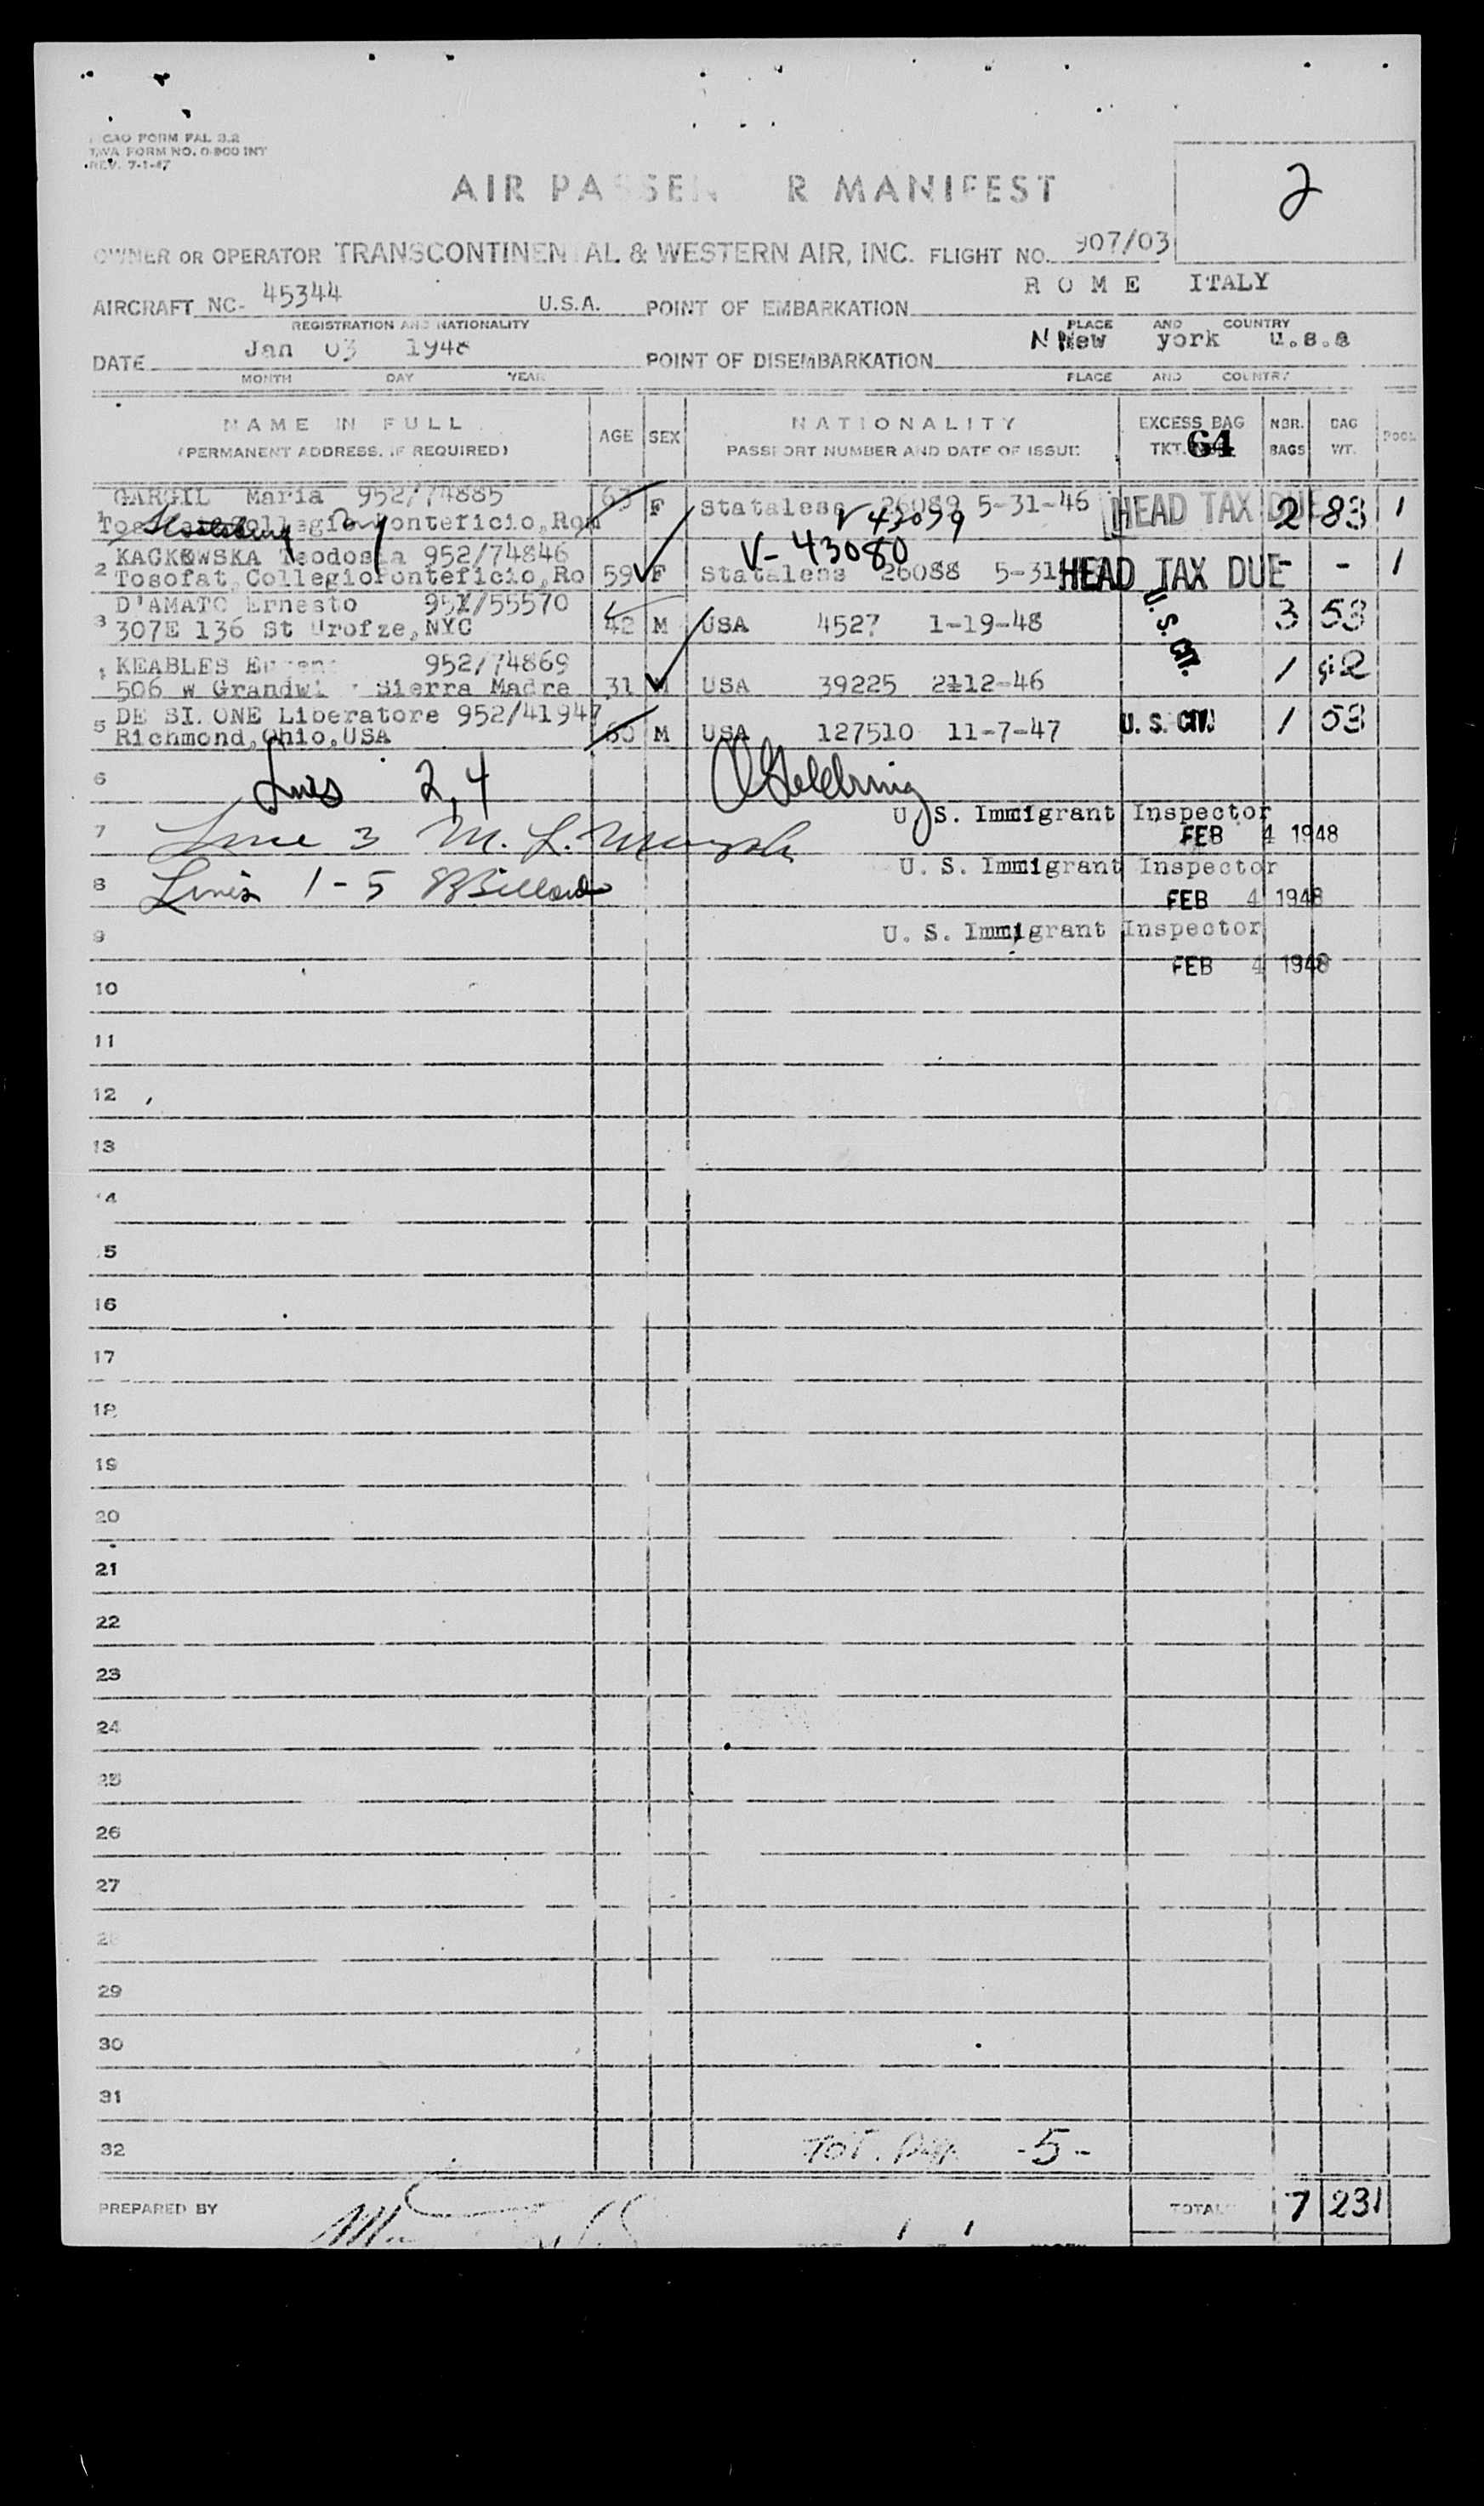 ICAO FORM FAL 3.2
TWA FORM NO. 0-900 INT
REV. 7-1-47
2
AIR PASSEN R MANIFEST
OWNER OR OPERATOR TRANSCONTINENTAL & WESTERN AIR, INC. FLIGHT NO. 907/03
AIRCRAFT NC- 45344 U.S.A. POINT OF EMBARKATION ROME ITALY
REGISTRATION AND NATIONALITY PLACE AND COUNTRY
DATE Jan 03 1948 POINT OF DISEMBARKATION N New york u.s.a
MONTH DAY YEAR PLACE AND COUNTRY
NAME IN FULL AGE SEX NATIONALITY EXCESS BAG NBR. BAG POOL
(PERMANENT ADDRESS, IF REQUIRED) PASSPORT NUMBER AND DATE OF ISSUE TKT. 64 BAGS WT.
GARGIL Maria 952/74885 63 F Stateless 26089 5-31-46 HEAD TAX DUE 2 83 1
1 Collegio Ponteficio, Rom V 43079
KACKOWSKA Teodosia 952/74846 V-43080
2 Tosofat, Collegio Ponteficio, Ro 59 F Stataless 26088 5-31 HEAD TAX DUE - - 1
D'AMATO Ernesto 951/55570 U.S. CIT.
3 307E 136 St Urofze, NYC 42 M USA 4527 1-19-48 3 53
KEABLES 952/74869
506 W Sierra Madre 31 M USA 39225 2112-46 1 42
DE SI.ONE Liberatore 952/41947
5 Richmond, Ohio, USA 60 M USA 127510 11-7-47 U.S. CIT. 1 53
6 Lines 2, 4
U. S. Immigrant Inspector
7 Line 3 M. L. FEB 4 1948
U. S. Immigrant Inspector
8 Lines 1-5 FEB 4 1948
9 U. S. Immigrant Inspector
FEB 4 1948
10
11
12
13
14
15
16
17
18
19
20
21
22
23
24
25
26
27
28
29
30
31
32 TOT. -5-
PREPARED BY TOTAL 7 231